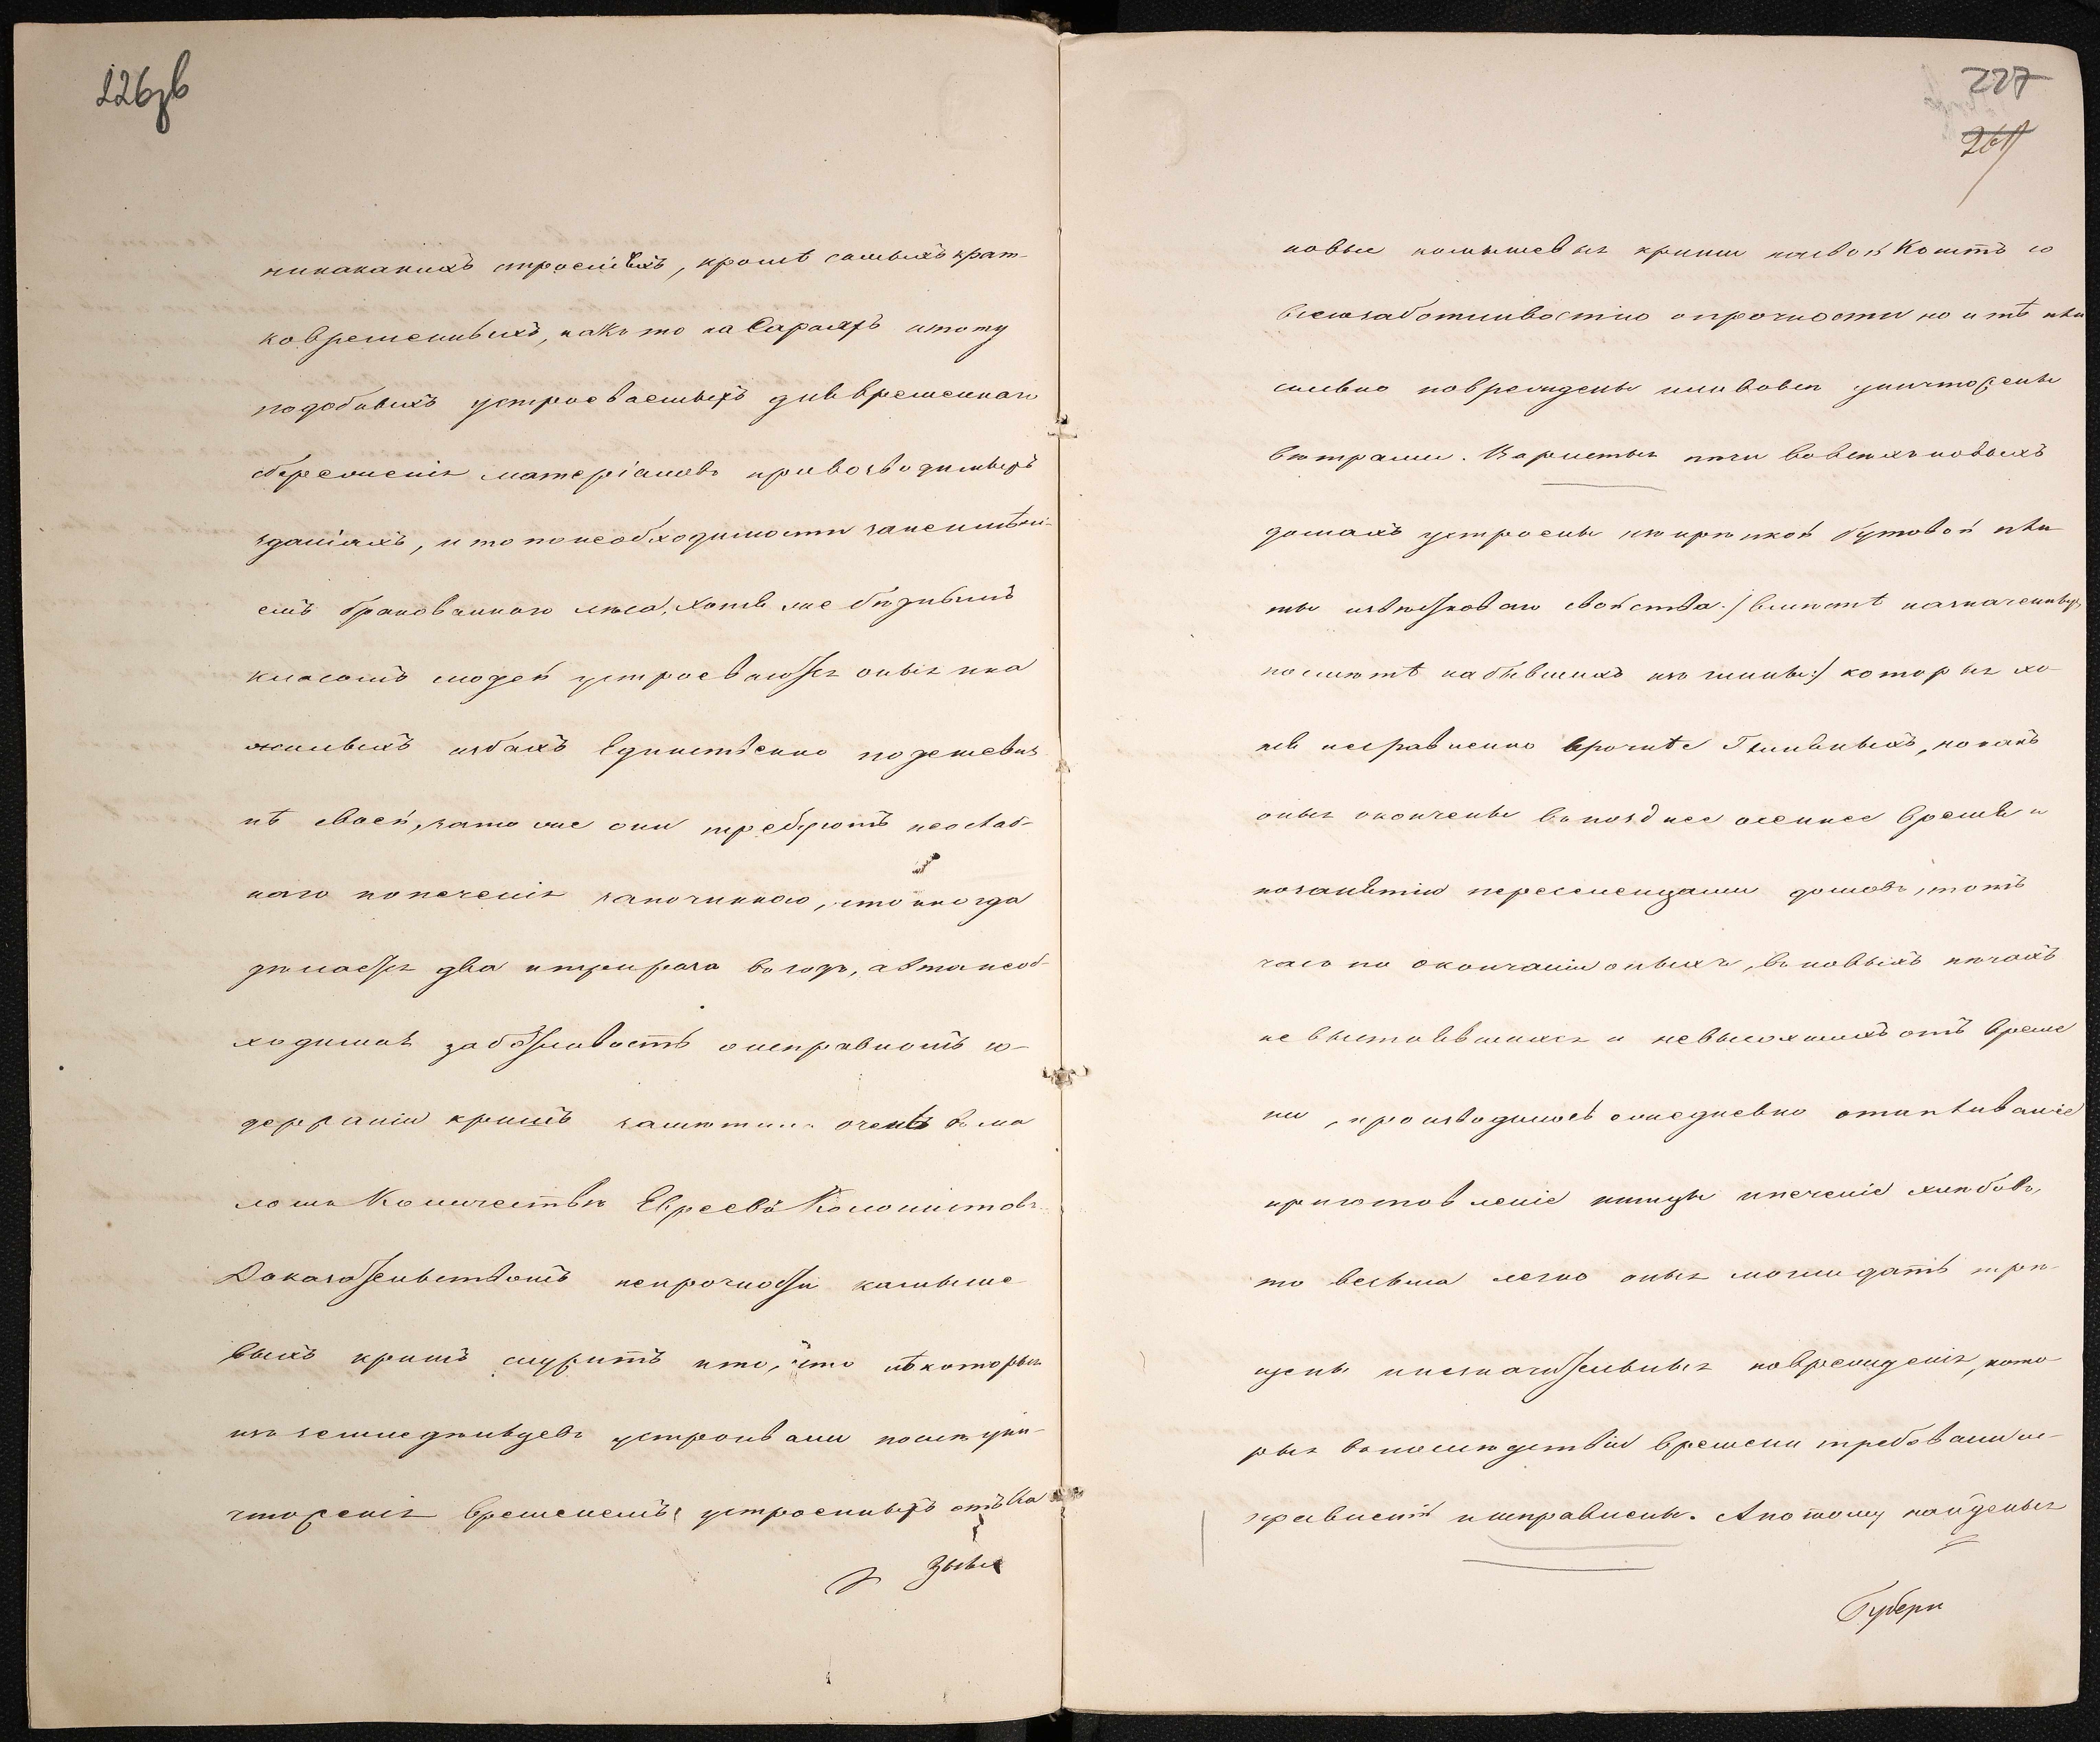 226зв
никакихъ строеніяхъ, кромѣ самыхъ крат-
ковременныхъ, какъ то на Сараяхъ и тому
подобныхъ устроеваемыхъ для временнаго
сбереженія матеріаловъ при возводимыхъ
зданіяхъ, и то по необходимости за неимѣні-
емъ бракованнаго лѣса, хотя же бѣднымъ
классомъ людей устроеваются оныя и на
жилыхъ избахъ Единственно по дешевиз-
нѣ своей, зато же они требуютъ неослаб-
наго попеченія за починкою, что иногда
дѣлается два и три раза въ годъ, а эта необ-
ходимая заботливость о исправномъ со-
держаніи крышъ замѣтна очень въ ма
ломъ Количествѣ Евреевъ Колонистовъ.
Доказательствомъ непрочности камыше
выхъ крышъ служитъ и то, что нѣкоторыя
изъ земледѣльцевъ устроивали послѣ уни-
чтоженія временемъ устроенныхъ отъ Ка
зны
227
261
новыя камышевыя крыши на свой Коштъ со
всею заботливостію о прочности но и тѣ или
сильно повреждены или вовсе уничтожены
вѣтрами. Варистыя печи во всѣхъ новыхъ
домахъ устроены изъ крѣпкой бутовой пли
ты известковаго свойства /: вмѣстѣ назначенныхъ
по смѣтѣ на бывшихъ изъ глины :/ которыя хо-
тя несравненно прочнѣе Глиняныхъ, но какъ
оныя окончены въ позднее осеннее время и
по занятіи переселенцами домовъ, тотъ
часъ по окончаніи оныхъ, въ новыхъ печахъ
не выстоявшихся и невысохшихъ отъ време
ни, производилось ежедневно отапливаніе
приготовленіе пищи и печеніе хлѣбовъ,
то весьма легко оныя могли дать трѣ-
щены и незначительныя поврежденія, кото
рыя въ послѣдствіи времени требовали ис-
правленія и исправлены. А потому найденыя
Губерн